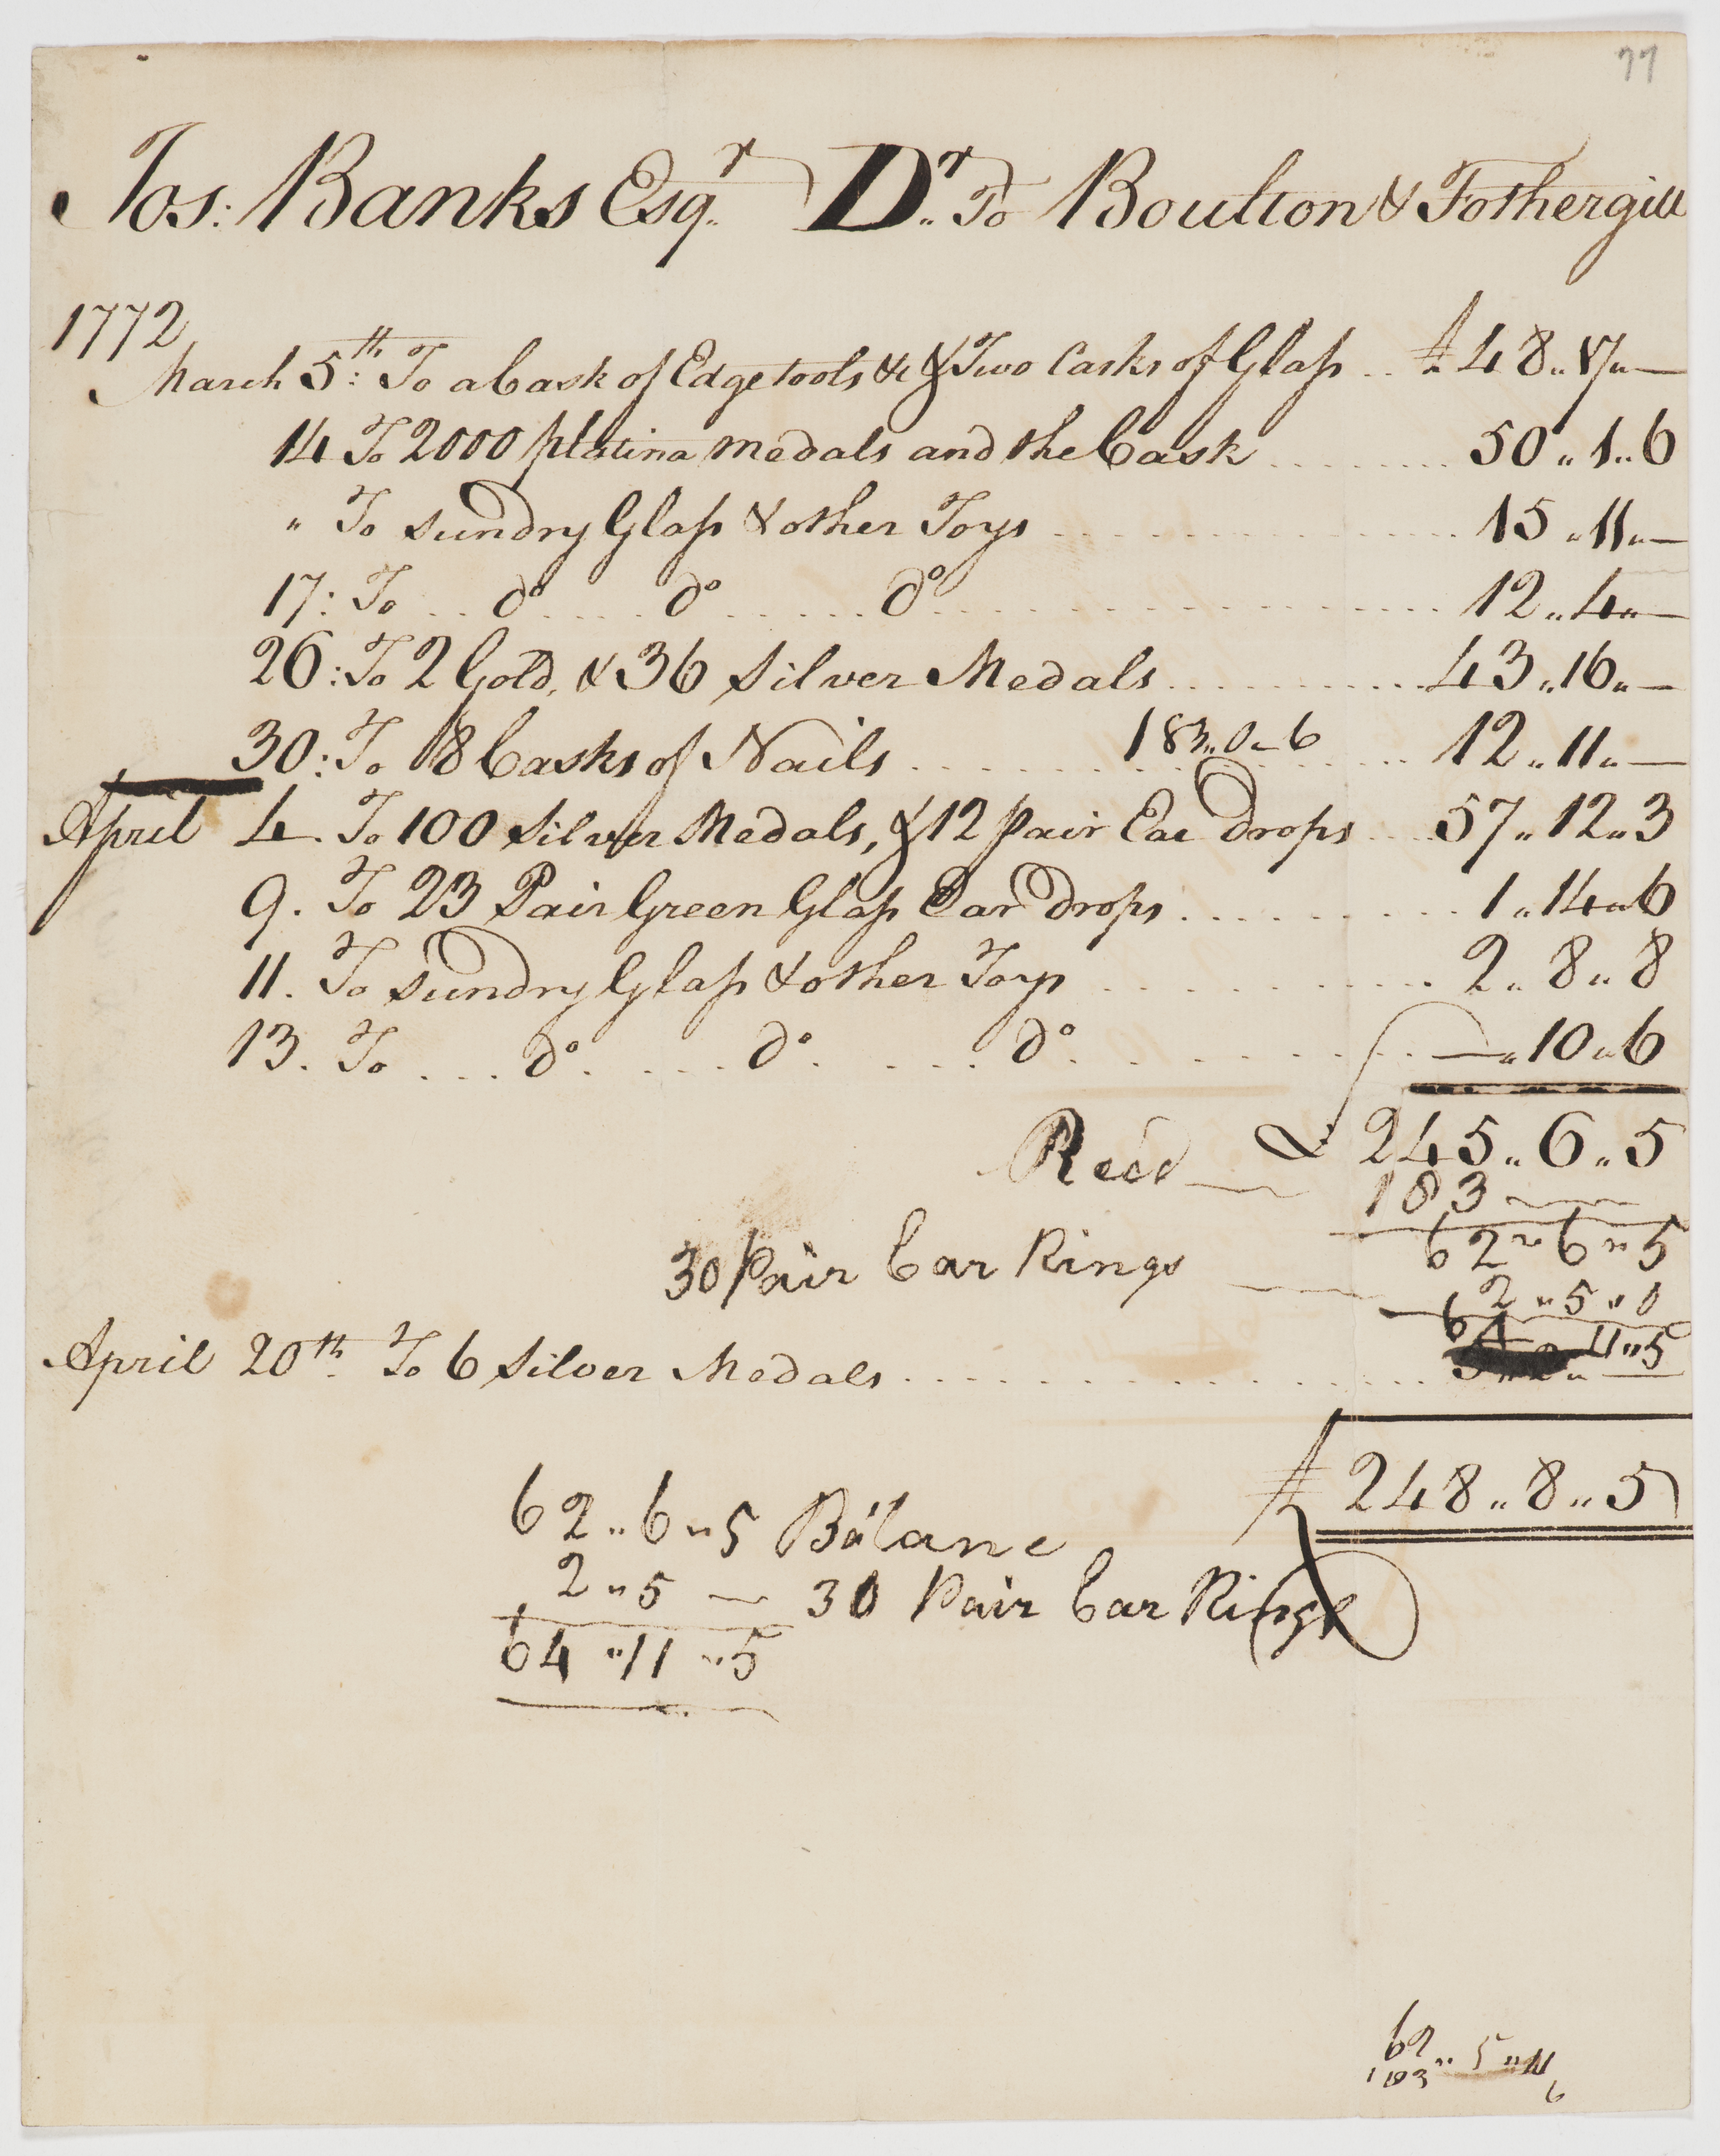 77
Jos: Banks Esqr. Dr. To Boulton & Fothergill
1772
March 5th: To a Cask of Edge tools &c & Two Casks of Glass .. £48..17..—
14 To 2000 platina medals and the Cask ........ 50..1..6
" To sundry Glass & other Toys ........ 15..11..—
17: To .. do .... do ..... do ........ 12..4..—
26: To 2 Gold, & 36 Silver Medals ........ 43..16..—
30: To 18 Casks of Nails ........ 183..0..6 .... 12..11..—
April 4. To 100 Silver Medals, & 12 pair Ear Drops ... 57..12..3
9. To 23 Pair Green Glass Ear Drops ........ 1..14..6
11. To sundry Glass & other Toys ........ 2..8..8
13. To ... do .... do .... do ........ —..10..6
£ 245..6..5
Recd — 183 — —
62..6..5
30 Pair Ear Rings — 2..5..0
64 11..5
April 20th To 6 Silver Medals ........
£ 248..8..5
62..6..5 Balanc
2..5 — 30 Pair Ear Rings
64..11..5
62..5..11
183 6